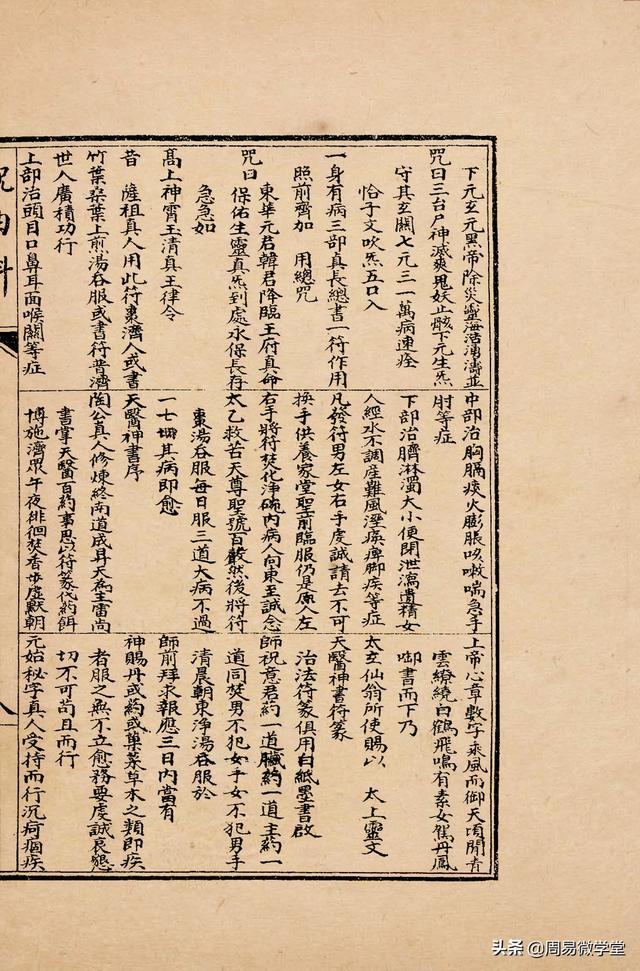 下元玄元黑帝除災靈海浩湧濤並
咒曰三台尸神滅爽鬼妖止骸下元生炁
守其玄關七元三一萬病速痊
恰子文吹炁五口入
一身有病三部真長總書一符作用
照前齊加 用總咒
東華元君韓君降臨王府真命
咒曰 保佑生靈真炁到處永保長存
急急如
高上神霄玉清真王律令
昔 薩祖真人用此符棗濟人或書
竹葉桑葉上煎湯吞服或書符普濟
世人廣積功行
上部治頭目口鼻耳面喉關等症
中部治胸膈痰火膨脹咳嗽喘急手
肘等症
下部治臍淋濁大小便閉泄瀉遺精女
人經水不調產難風溼疾痺脚疾等症
凡發符男左女右手虔誠請去不可
換手供養家堂聖前臨服仍是原人左
右手將符焚化淨碗內病人向東至誠念
太乙救苦天尊聖號百數然後將符
棗湯吞服每日服三道大病不過
一七冊其病即愈
天醫神書序
陶公真人修煉終南道成昇天為主雷尚
書掌天醫百約事思以符篆代約餌
博施濟眾午夜徘徊焚香步虛默朝
上帝心章數字乘風而御天頃聞青
雲繚繞白鶴飛鳴有素女駕丹鳳
啣書而下乃
太玄仙翁所使賜以 太上靈文
天醫神書符篆
治法符篆俱用白紙墨書啟
師祝意君約一道臟約一道主約一
道同焚男不犯女手女不犯男手
清晨朝東淨湯吞服於
師前拜求報應三日內當有
神賜丹或約或菓菜草木之類即疾
者服之無不立愈務要虔誠哀懇
切不可苟且而行
元始秘字真人受持而行沉疴痼疾
由科
八
头条 @周易微学堂